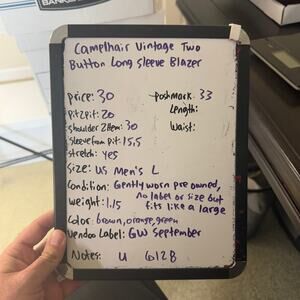 BANKERS
Camelhair Vintage Two
Button Long Sleeve Blazer
Price: 30
Poshmark: 33
Pit2Pit: 20
Length:
Shoulder 2 Hem: 30
Waist:
Sleeve from Pit: 15.5
Stretch: Yes
Size: US Men's L
Condition: Gently worn pre owned,
no label or size but
fits like a large
Weight: 1.15
Color: brown, orange, green
Vendoo Label: GW September
Notes: U G12B